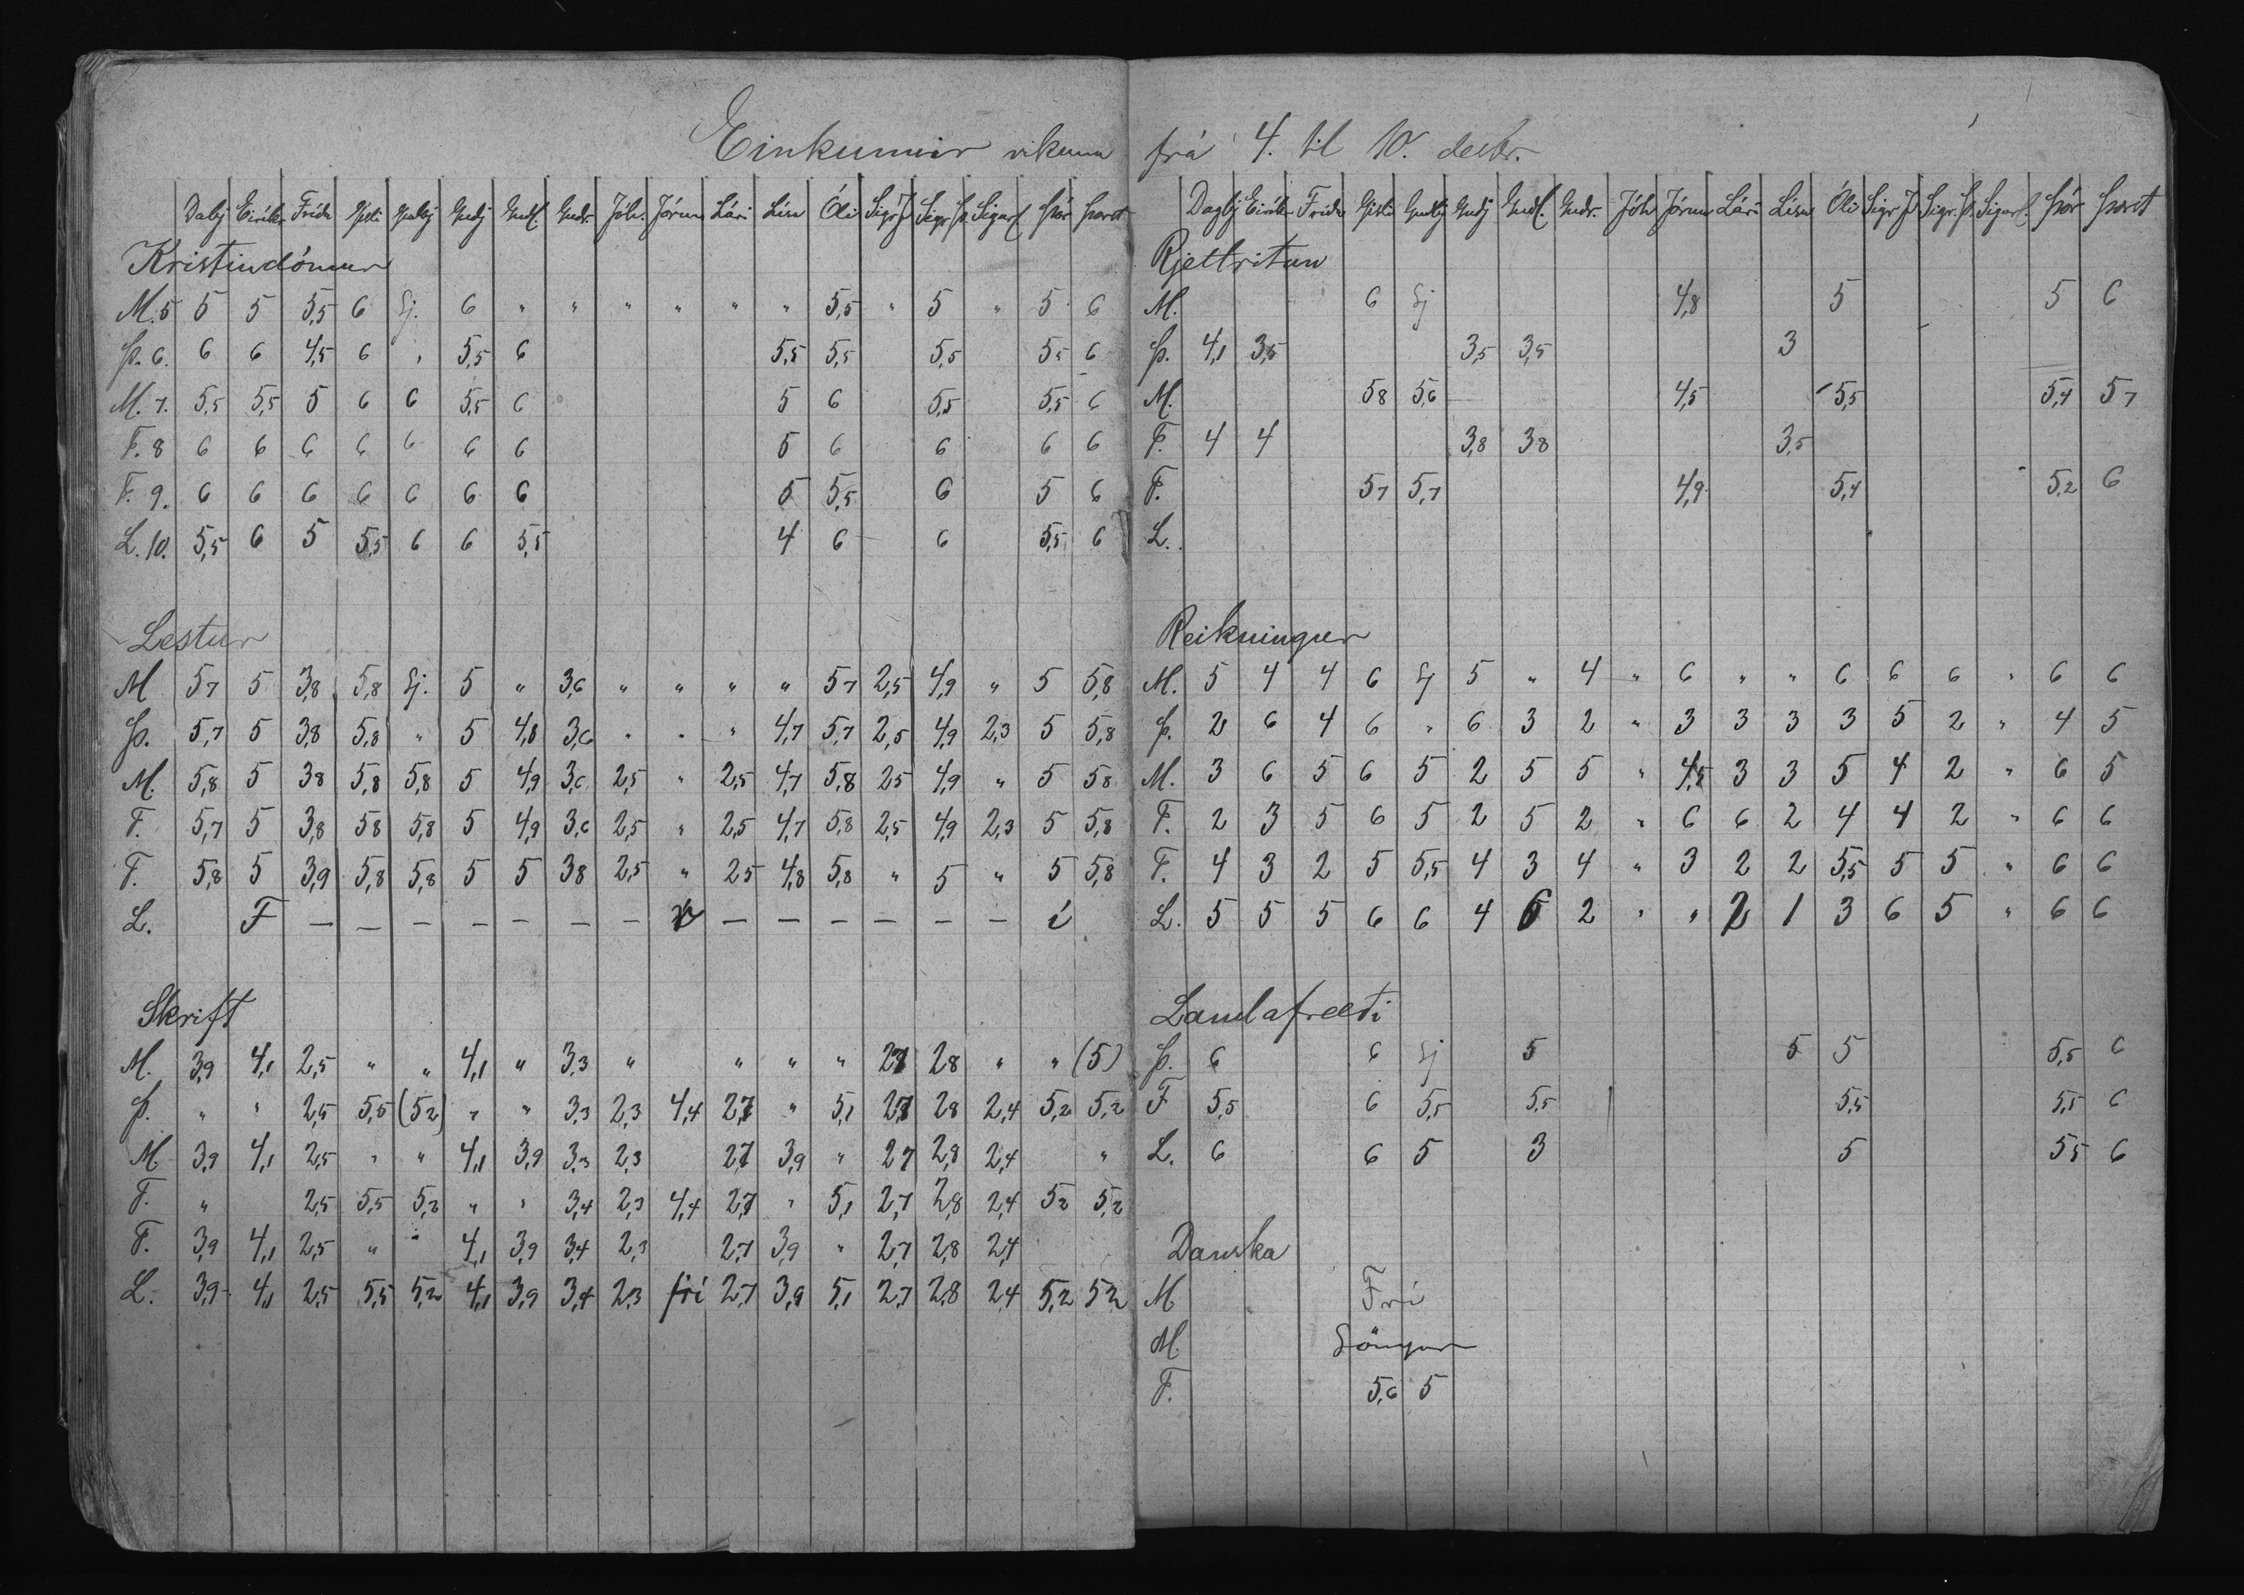 Einkunnir vikuna
Dabj Eirík Fríða Gísli Guðbj Guðj Guðl. Guðr. Jóh. Jórun Lári Lísu Óli Sigr J Sigr Þ. Sigurl Þór Þorst
Kristindómur
M. 5 5 5 5,5 6 Sj. 6 " " " " " " 5,5 " 5 " 5 6
Þ. 6. 6 6 4,5 6 " 5,5 6 5,5 5,5 5,5 5,5 6
M. 7. 5,5 5,5 5 6 6 5,5 6 5 6 5,5 5,5 6
F. 8 6 6 6 6 6 6 6 5 6 6 6 6
F. 9. 6 6 6 6 6 6 6 5 5,5 6 5 6
L. 10. 5,5 6 5 5,5 6 6 5,5 4 6 6 5,5 6
Lestur
M 5,7 5 3,8 5,8 Sj. 5 " 3,6 " " " " 5,7 2,5 4,9 " 5 5,8
Þ. 5,7 5 3,8 5,8 " 5 4,8 3,6 " " " 4,7 5,7 2,5 4,9 2,3 5 5,8
M. 5,8 5 3,8 5,8 5,8 5 4,9 3,6 2,5 " 2,5 4,7 5,8 2,5 4,9 " 5 5,8
F. 5,7 5 3,8 5,8 5,8 5 4,9 3,6 2,5 " 2,5 4,7 5,8 2,5 4,9 2,3 5 5,8
F. 5,8 5 3,9 5,8 5,8 5 5 3,8 2,5 " 2,5 4,8 5,8 " 5 " 5 5,8
L. F — — — — — — — r — — — — — — í
Skrift
M. 3,9 4,1 2,5 " " 4,1 " 3,3 " " " " 2,7 2,8 " " (5)
Þ. " " 2,5 5,5 (5,2) " " 3,3 2,3 4,4 2,7 " 5,1 2,7 2,8 2,4 5,2 5,2
M 3,9 4,1 2,5 " " 4,1 3,9 3,3 2,3 2,7 3,9 " 2,7 2,8 2,4 "
F. " 2,5 5,5 5,2 " " 3,4 2,3 4,4 2,7 " 5,1 2,7 2,8 2,4 5,2 5,2
F. 3,9 4,1 2,5 " " 4,1 3,9 3,4 2,3 2,7 3,9 " 2,7 2,8 2,4
L. 3,9 4,1 2,5 5,5 5,2 4,1 3,9 3,4 2,3 frí 2,7 3,9 5,1 2,7 2,8 2,4 5,2 5,2
frá 4. til 10. desbr.
Dagbj Eirík Fríða Gísli Guðbj Guðj Guðl. Guðr. Jóh Jórun Lári Lísu Óli Sigr J Sigr. Þ. Sigurl. Þór Þorst
Rjettritun
M. 6 Sj 4,8 5 5 6
Þ. 4,1 3,5 3,5 3,5 3
M. 5,8 5,6 4,5 5,5 5,4 5,7
F. 4 4 3,8 3,8 3,5
F. 5,7 5,7 4,9 5,4 5,2 6
L.
Reikningur
M. 5 4 4 6 Sj 5 " 4 " 6 " " 6 6 6 " 6 6
Þ. 2 6 4 6 " 6 3 2 " 3 3 3 3 5 2 " 4 5
M. 3 6 5 6 5 2 5 5 " 4,5 3 3 5 4 2 " 6 5
F. 2 3 5 6 5 2 5 2 " 6 6 2 4 4 2 " 6 6
F. 4 3 2 5 5,5 4 3 4 " 3 2 2 5,5 5 5 " 6 6
L. 5 5 5 6 6 4 6 2 " " 2 1 3 6 5 " 6 6
Landafræði
Þ. 6 6 Sj 5 5 5 5,5 6
F 5,5 6 5,5 5,5 5,5 5,5 6
L. 6 6 5 3 5 5,5 6
Danska
M Frí
M. Söngur
F. 5,6 5